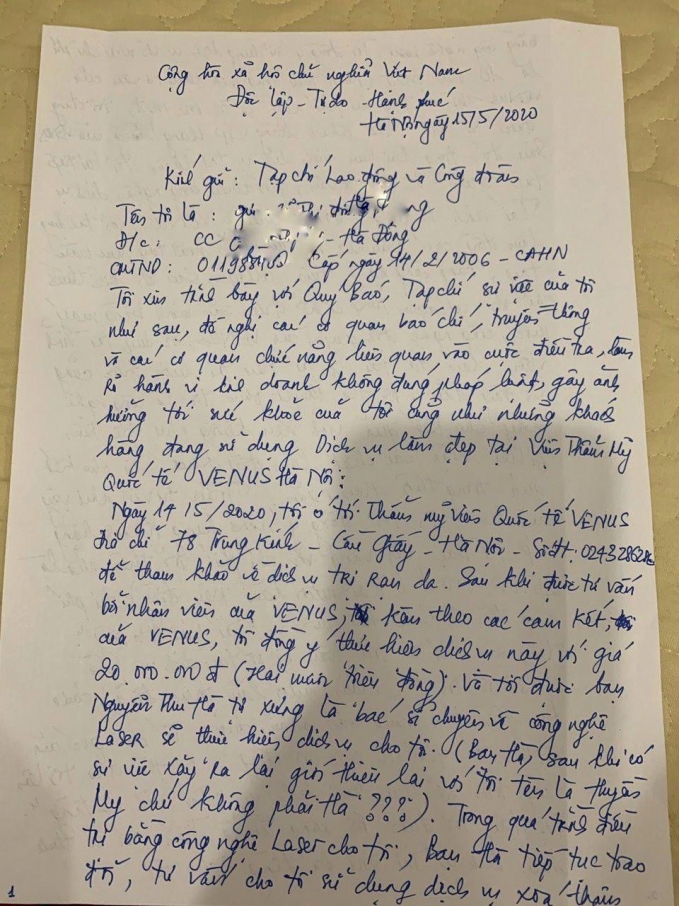 Cộng hòa xã hội chủ nghĩa Việt Nam
Độc lập - Tự do - Hạnh phúc
Hà Nội ngày 15/5/2020
Kính gửi: Tạp chí Lao động và Công đoàn
Tên tôi là:
Đ/c: CC - Hà Đông
CMTND: Cấp ngày 14/2/2006 - CAHN
Tôi xin trình bày với Quý Báo, Tạp chí sự việc của tôi
như sau, đề nghị các cơ quan báo chí, truyền thông
và các cơ quan chức năng liên quan vào cuộc điều tra, làm
rõ hành vi kinh doanh không đúng pháp luật, gây ảnh
hưởng tới sức khỏe của tôi cũng như những khách
hàng đang sử dụng Dịch vụ làm đẹp tại Viện Thẩm Mỹ
Quốc tế VENUS Hà Nội:
Ngày 14/5/2020, tôi có tới Thẩm mỹ viện Quốc tế VENUS
địa chỉ 78 Trung Kính - Cầu Giấy - Hà Nội - Số ĐT: 0243286286
để tham khảo về dịch vụ trị rạn da. Sau khi được tư vấn
bởi nhân viên của VENUS, kèm theo các cam kết,
của VENUS, tôi đồng ý thực hiện dịch vụ này với giá
20.000.000đ (Hai mươi triệu đồng). Và tôi được bạn
Nguyễn Thu Hà tự xưng là bác sĩ chuyên về công nghệ
Laser sẽ thực hiện dịch vụ cho tôi. (Bạn Hà, sau khi có
sự việc xảy ra lại giới thiệu lại với tôi tên là Huyền
My chứ không phải Hà ???). Trong quá trình điều
trị bằng công nghệ Laser cho tôi, Bạn Hà tiếp tục trao
đổi, tư vấn cho tôi sử dụng dịch vụ xoá thâm
1